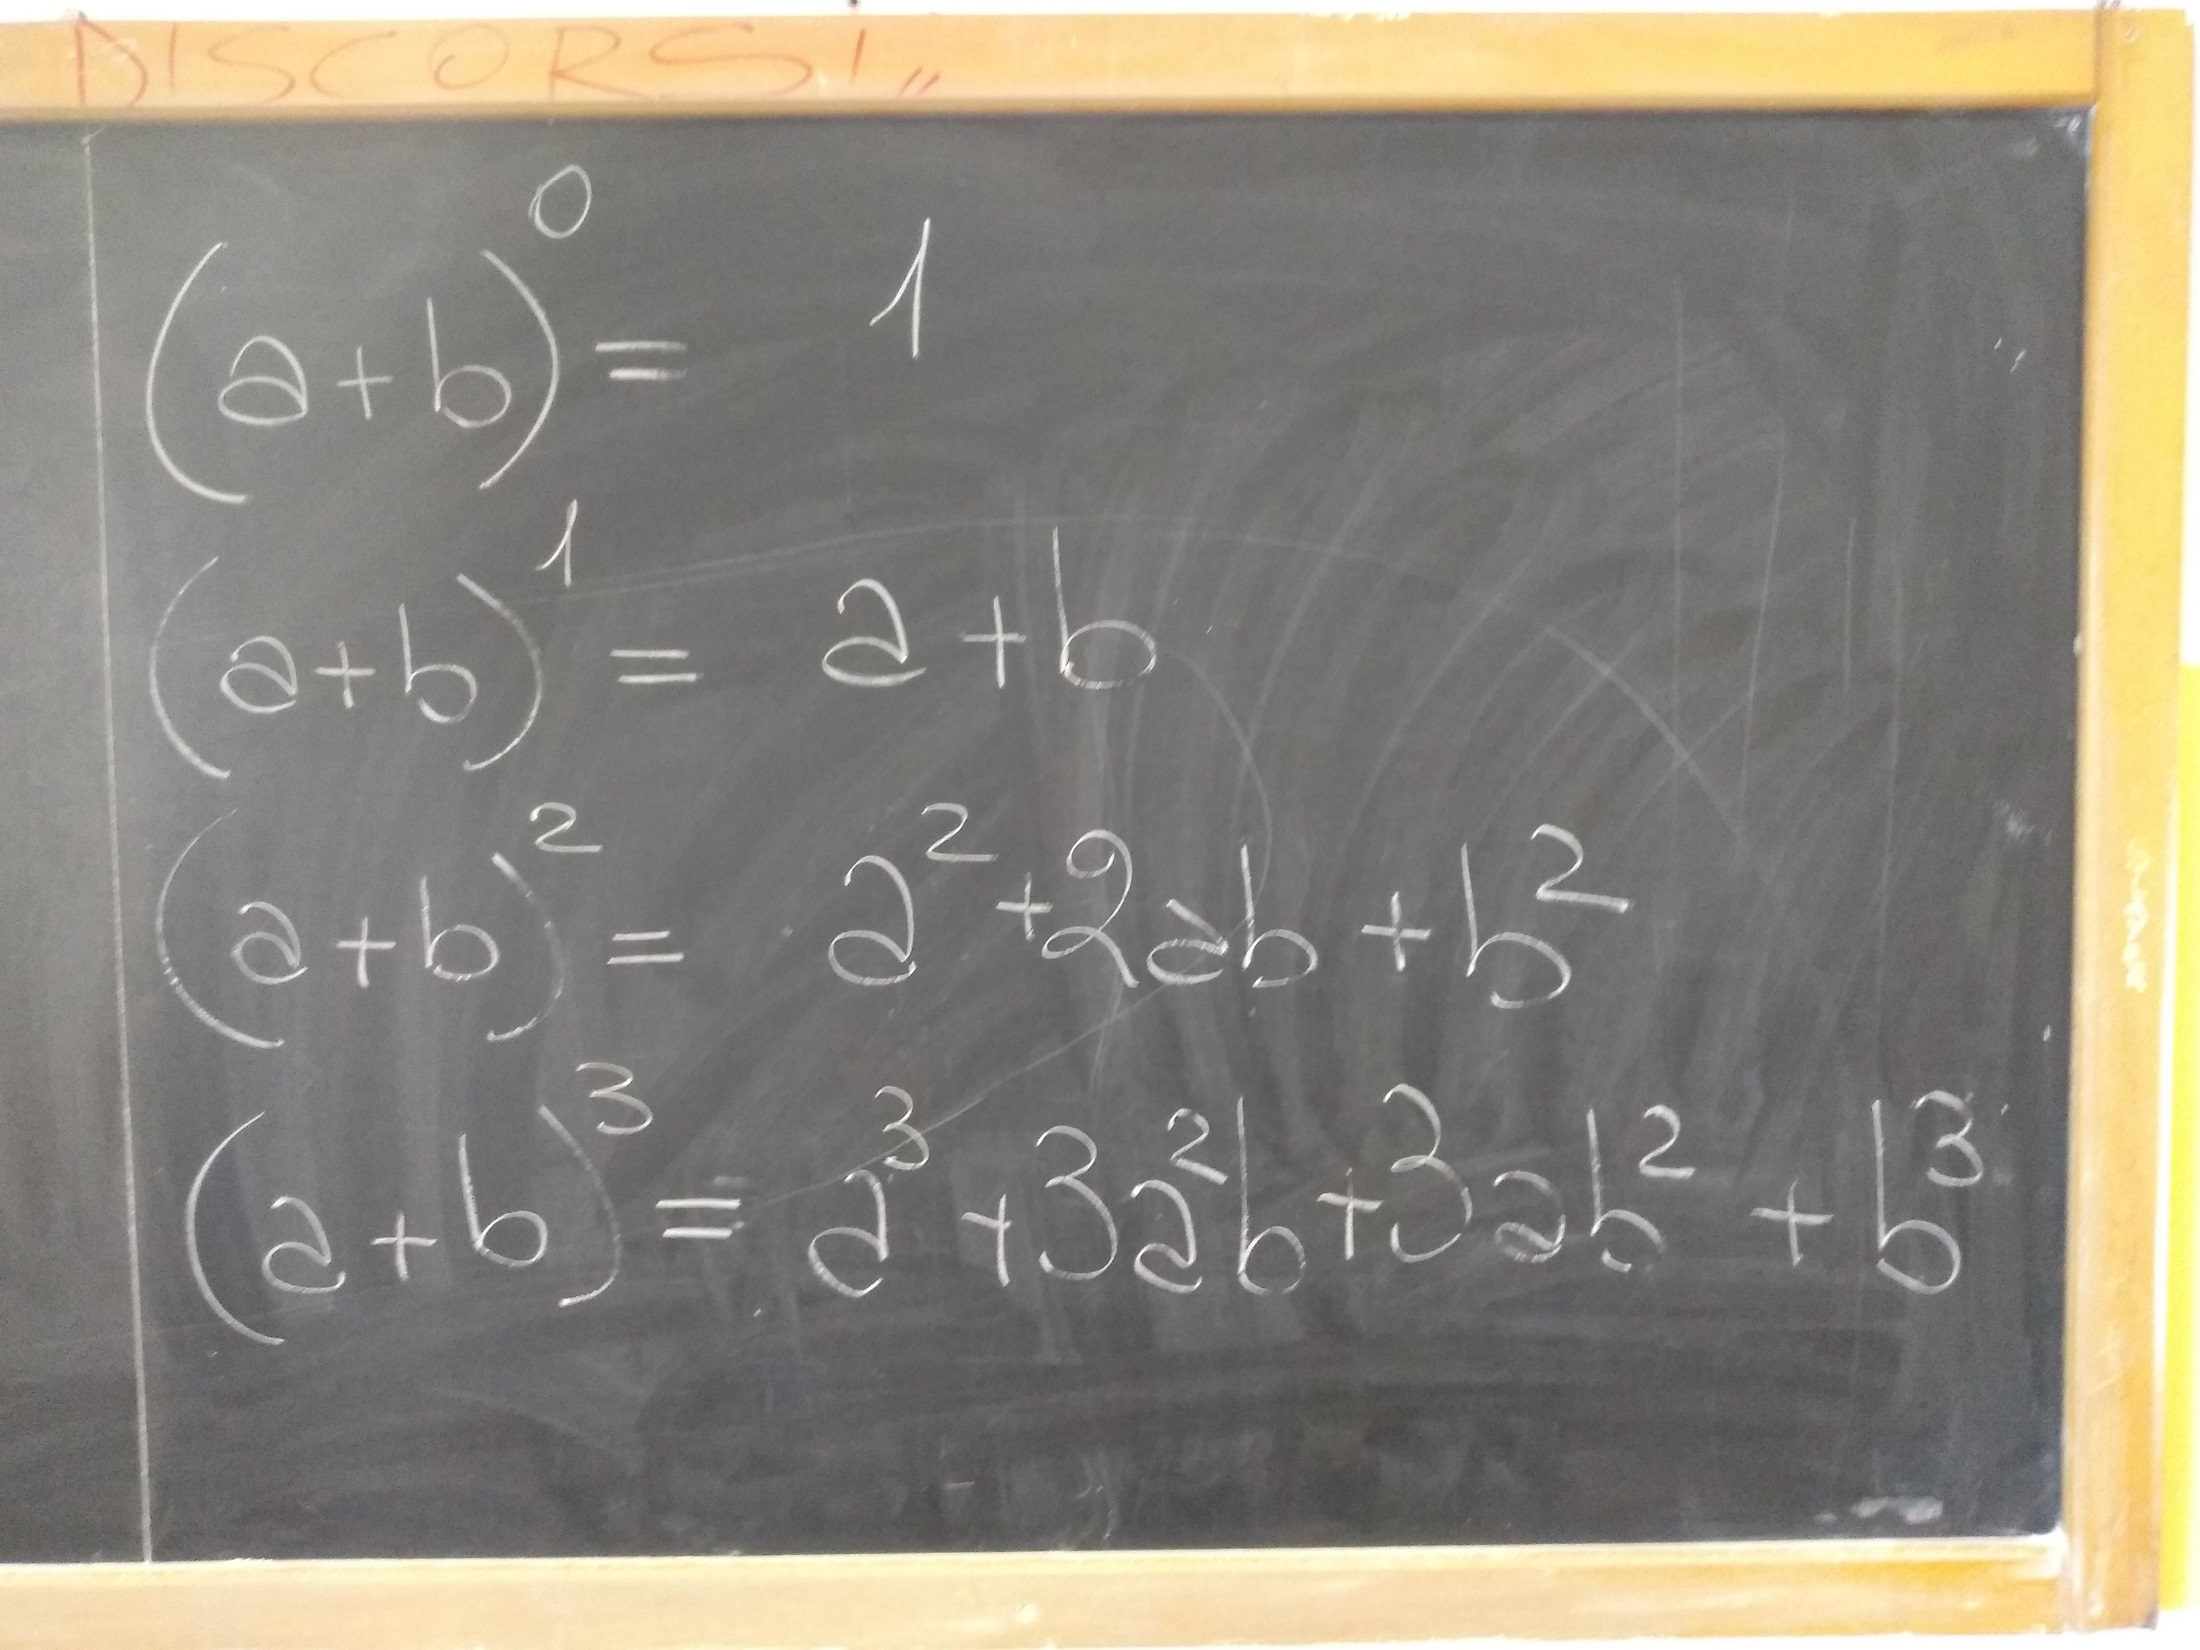 DISCORSI„
(a+b)⁰ = 1
(a+b)¹ = a+b
(a+b)² = a²+2ab+b²
(a+b)³ = a³+3a²b+3ab²+b³